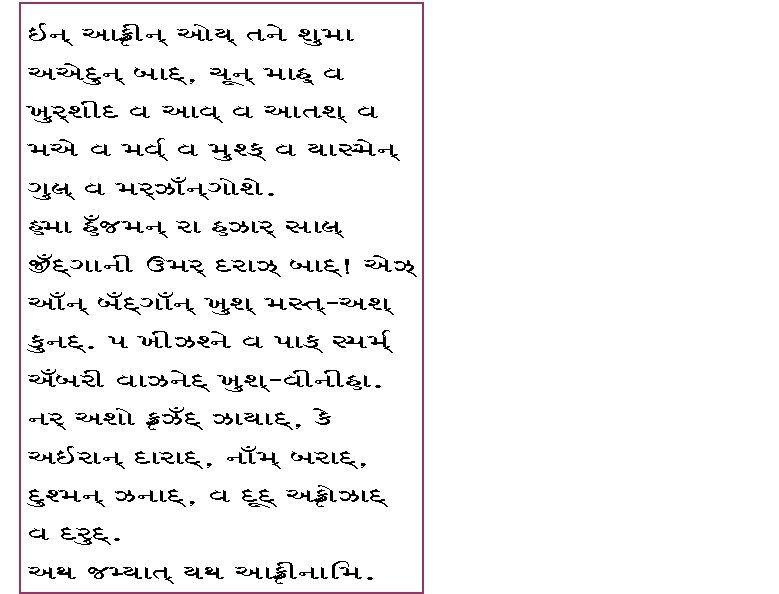 ઈન્ આફ્રીન્ ઓય્ તને શુમા
અએદુન્ બાદ્, ચૂન્ માહ્ વ
ખુર્શીદ વ આવ્ વ આતશ્ વ
મએ વ મર્વ્ વ મુશ્ક્ વ યાસ્મેન્
ગુલ્ વ મર્ઝાઁન્ગોશે.
હુમા હુઁજમન્ રા હઝાર્ સાલ્
જીઁદ્ગાની ઉમર્ દરાઝ્ બાદ્! એઝ્
આઁન્ બઁદ્ગાઁન્ ખુશ્ મસ્ત્-અશ્
કુનદ્. પ ખીઝશ્ને વ પાક્ સ્મર્મ્
અઁબરી વાઝનેદ્ ખુશ્-વીનીહા.
નર્ અશો ફ્રઝઁદ્ ઝાયાદ્, કે
અઈરાન્ દારાદ્, નાઁમ્ બરાદ્,
દુશ્મન્ ઝનાદ્, વ દૂદ્ અફ્રોઝાદ્
વ દરુદ્.
અથ જમ્યાત્ યથ આફ્રીનામિ.